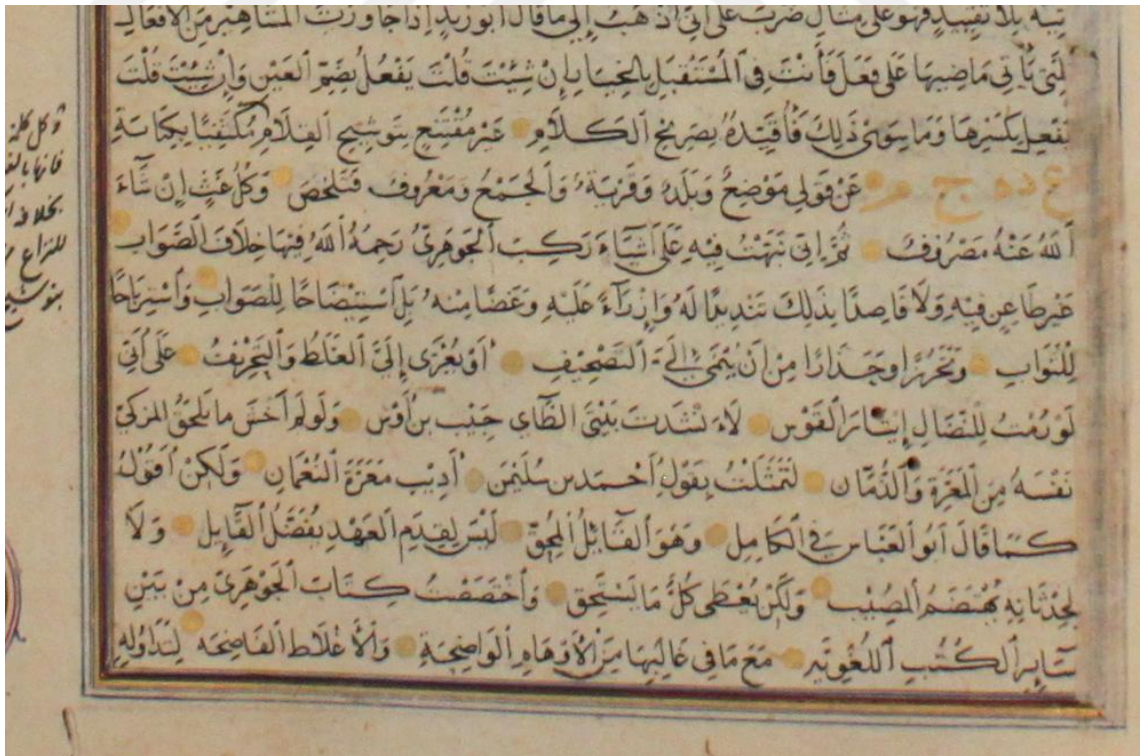 تنبيه بلا تقييد فهو على مثال ضرب على أني أذهب إلى ما قال أبو زيد إذا جاوزت المشاهير من الأفعال
التي يأتي ماضيها على فعل فأنت في المستقبل بالخيار إن شئت قلت يفعل بضم العين وإن شئت قلت
يفعل بكسرها وما سوى ذلك فأقيده بصريح الكلام غير مقتنع بتوشيح القلام مكتفيا بكتابة
ع د ه ج م عن قولي موضع وبلد وقرية والجمع ومعروف فتلخص وكل غث إن شاء
الله عنه مصروف ثم إني نبهت فيه على أشياء ركب الجوهري رحمه الله فيها خلاف الصواب
غير طاعن فيه ولا قاصدا بذلك تنديدا له وإزراء عليه وغضا منه بل استيضاحا للصواب واسترباحا
للثواب وتحرزا وحذارا من أن ينمى إلي التصحيف أو يعزى إلي الغلط والتحريف على أني
لو رمت للنضال إيتار القوس لأنشدت بيتي الطائي حبيب بن أوس ولو لم أخش ما يلحق المزكي
نفسه من المعرة والدمان لتمثلت بقول أحمد بن سليمن أديب معرة النعمان ولكن أقول
كما قال أبو العباس في الكامل وهو القائل المحق ليس لقدم العهد يفضل القايل ولا
لحدثانه يهتضم المصيب ولكن يعطى كل ما يستحق واختصصت كتاب الجوهري من بين
سائر الكتب اللغوية مع ما في غالبها من الأوهام الواضحة والأغلاط الفاضحة لتداوله
وكل كلمة
بخلافه
للنزاع
بتوشيح